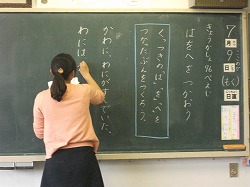 7月9日(もく)
日直
きょうかしょ96ページ
はをへを つかおう
くっつきの「は」「を」「へ」を
つかったぶんをつくろう。
かわに、わにがすんでいた。
わには